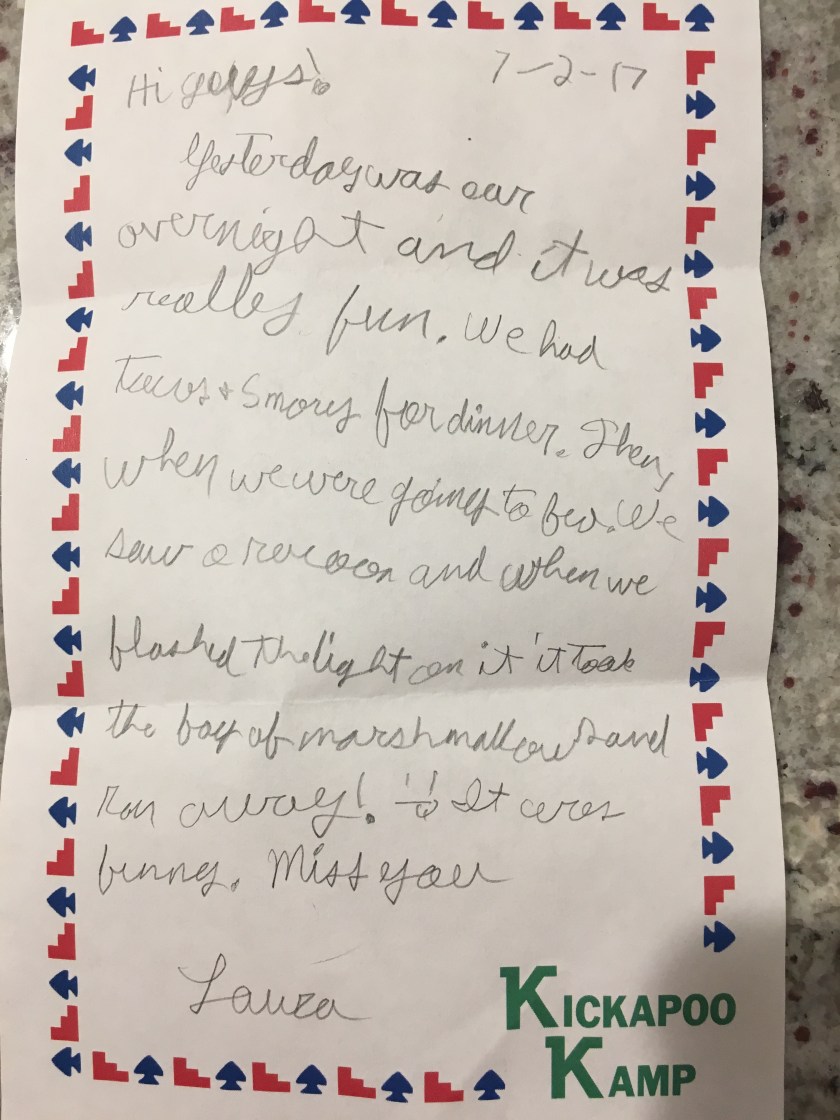 Hi guys! 7-2-17
Yesterday was our
overnight and it was
really fun. We had
Tacos + Smores for dinner. Then,
when we were going to bed. We
saw a rocoon and when we
flashed the light on it it took
the bag of marshmallows and
ran away! It was
funny. Miss you
Laura
KICKAPOO
KAMP